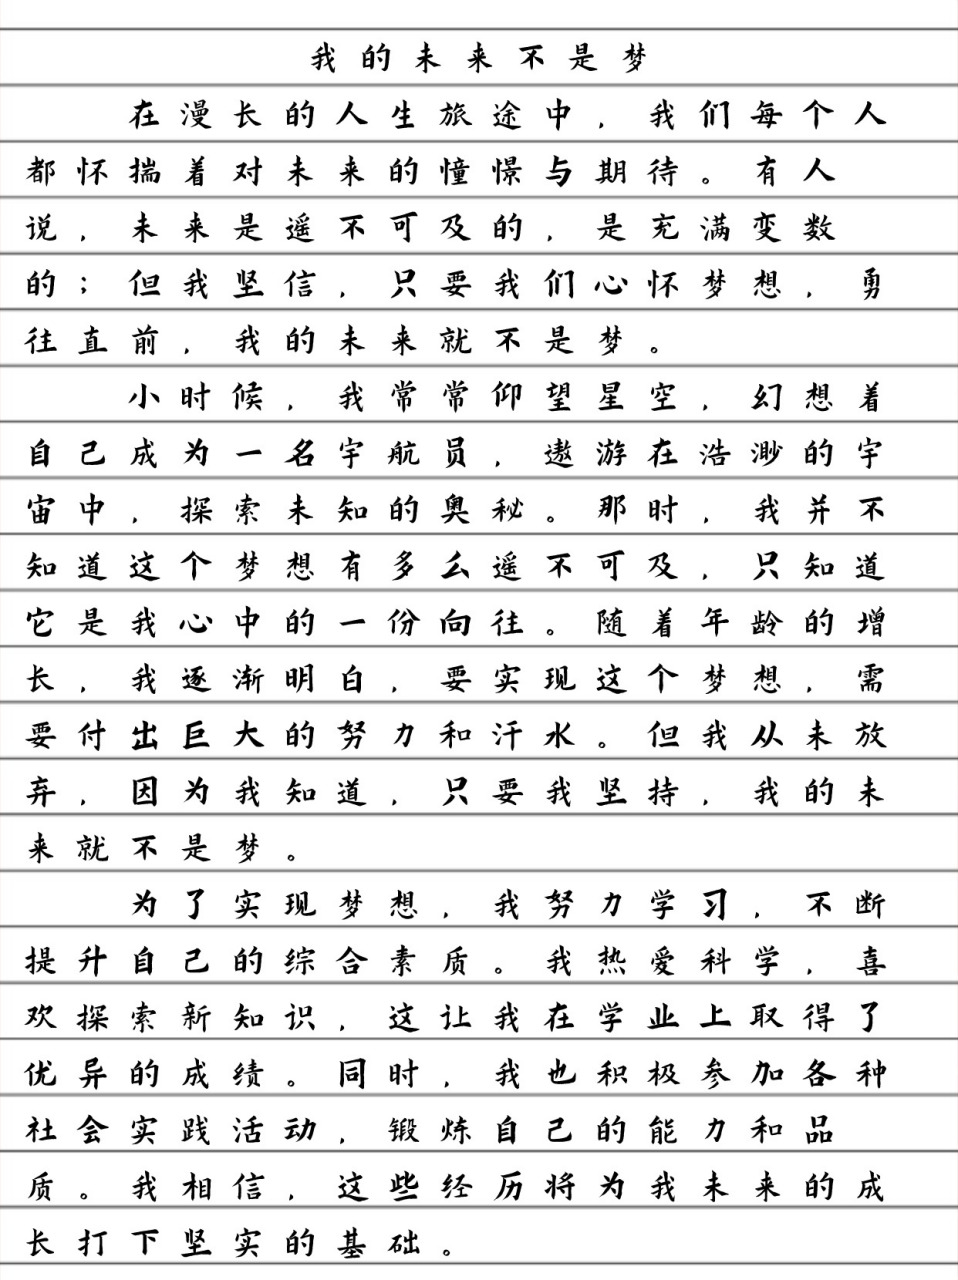 我的未来不是梦
在漫长的人生旅途中，我们每个人
都怀揣着对未来的憧憬与期待。有人
说，未来是遥不可及的，是充满变数
的；但我坚信，只要我们心怀梦想，勇
往直前，我的未来就不是梦。
小时候，我常常仰望星空，幻想着
自己成为一名宇航员，遨游在浩渺的宇
宙中，探索未知的奥秘。那时，我并不
知道这个梦想有多么遥不可及，只知道
它是我心中的一份向往。随着年龄的增
长，我逐渐明白，要实现这个梦想，需
要付出巨大的努力和汗水。但我从未放
弃，因为我知道，只要我坚持，我的未
来就不是梦。
为了实现梦想，我努力学习，不断
提升自己的综合素质。我热爱科学，喜
欢探索新知识，这让我在学业上取得了
优异的成绩。同时，我也积极参加各种
社会实践活动，锻炼自己的能力和品
质。我相信，这些经历将为我未来的成
长打下坚实的基础。